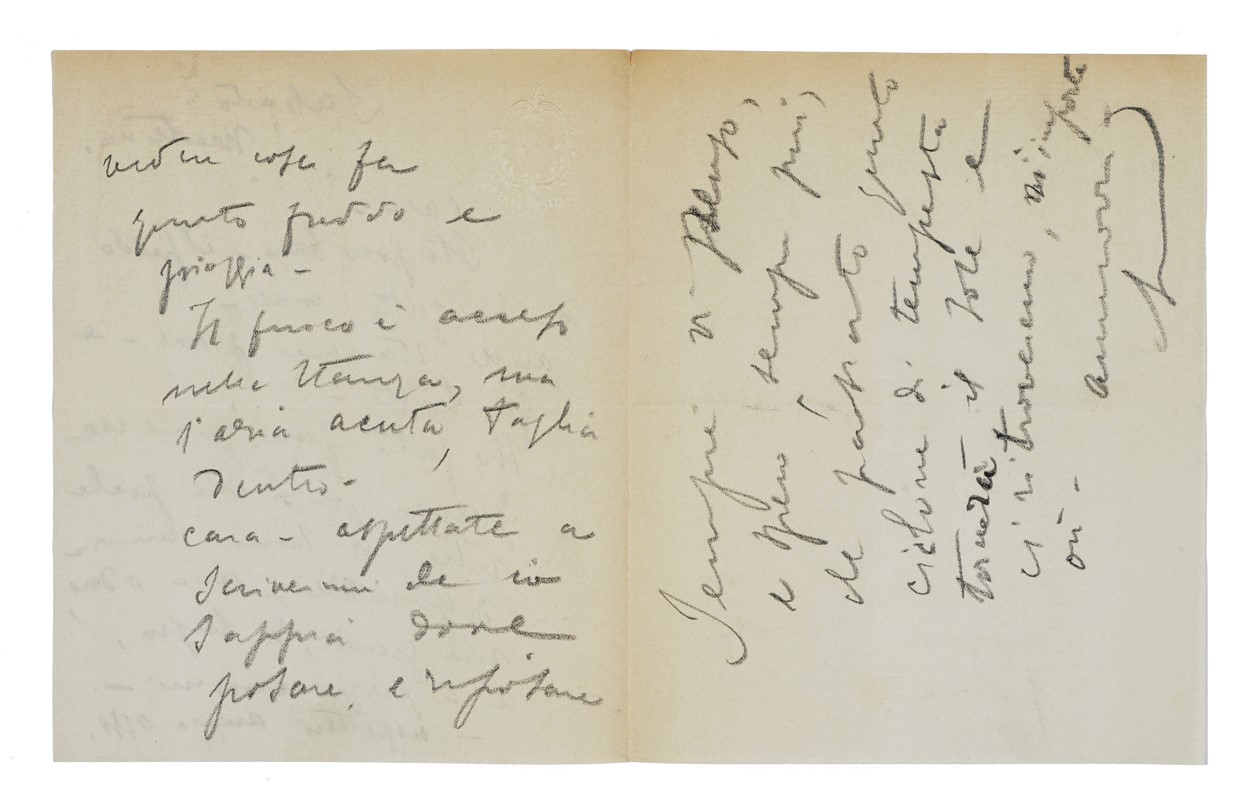 veder cosa fa
questo freddo e
pioggia -
Il fuoco è acceso
nella stanza, ma
l'aria acuta, taglia
dentro -
cara - aspettate a
scrivermi che io
sappia dove
posare, e riposare
Sempre vi penso,
e spero sempre più,
che passato questo
ciclone di tempesta
tornerà il sole e
ci ritroveremo, mi importa
ora -